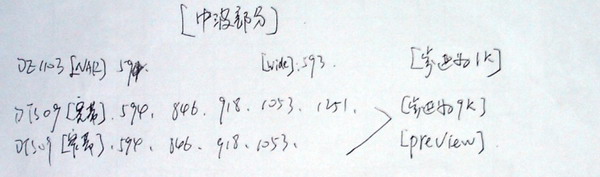 [中波部分]
DE1103 [NAR] 594. [wide]: 593. [步进为1K]
DT509 [宽带]. 594. 846. 918. 1053. 1251. [步进为9K]
DT509 [宽带]. 594. 846. 918. 1053. [preview]